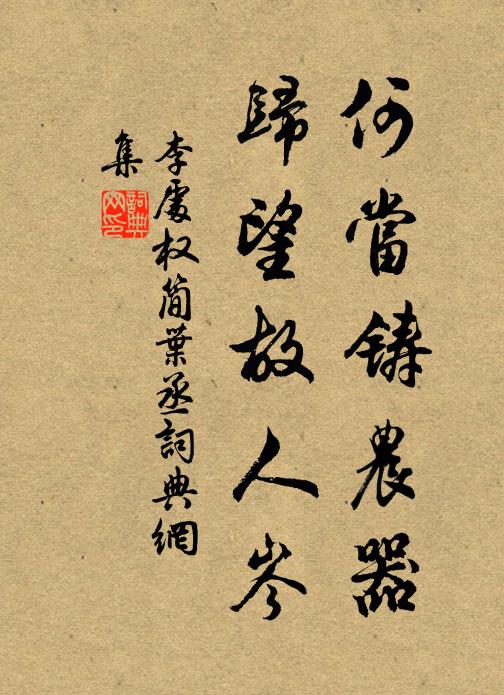 何當鑄農器
歸望故人岑
李處权簡葉丞詞典網
集
詞典網印